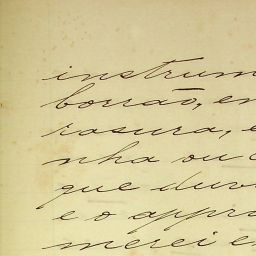 instrum
borrão, en
rasura, e
nha ou c
que duvi
e o appro
merei e